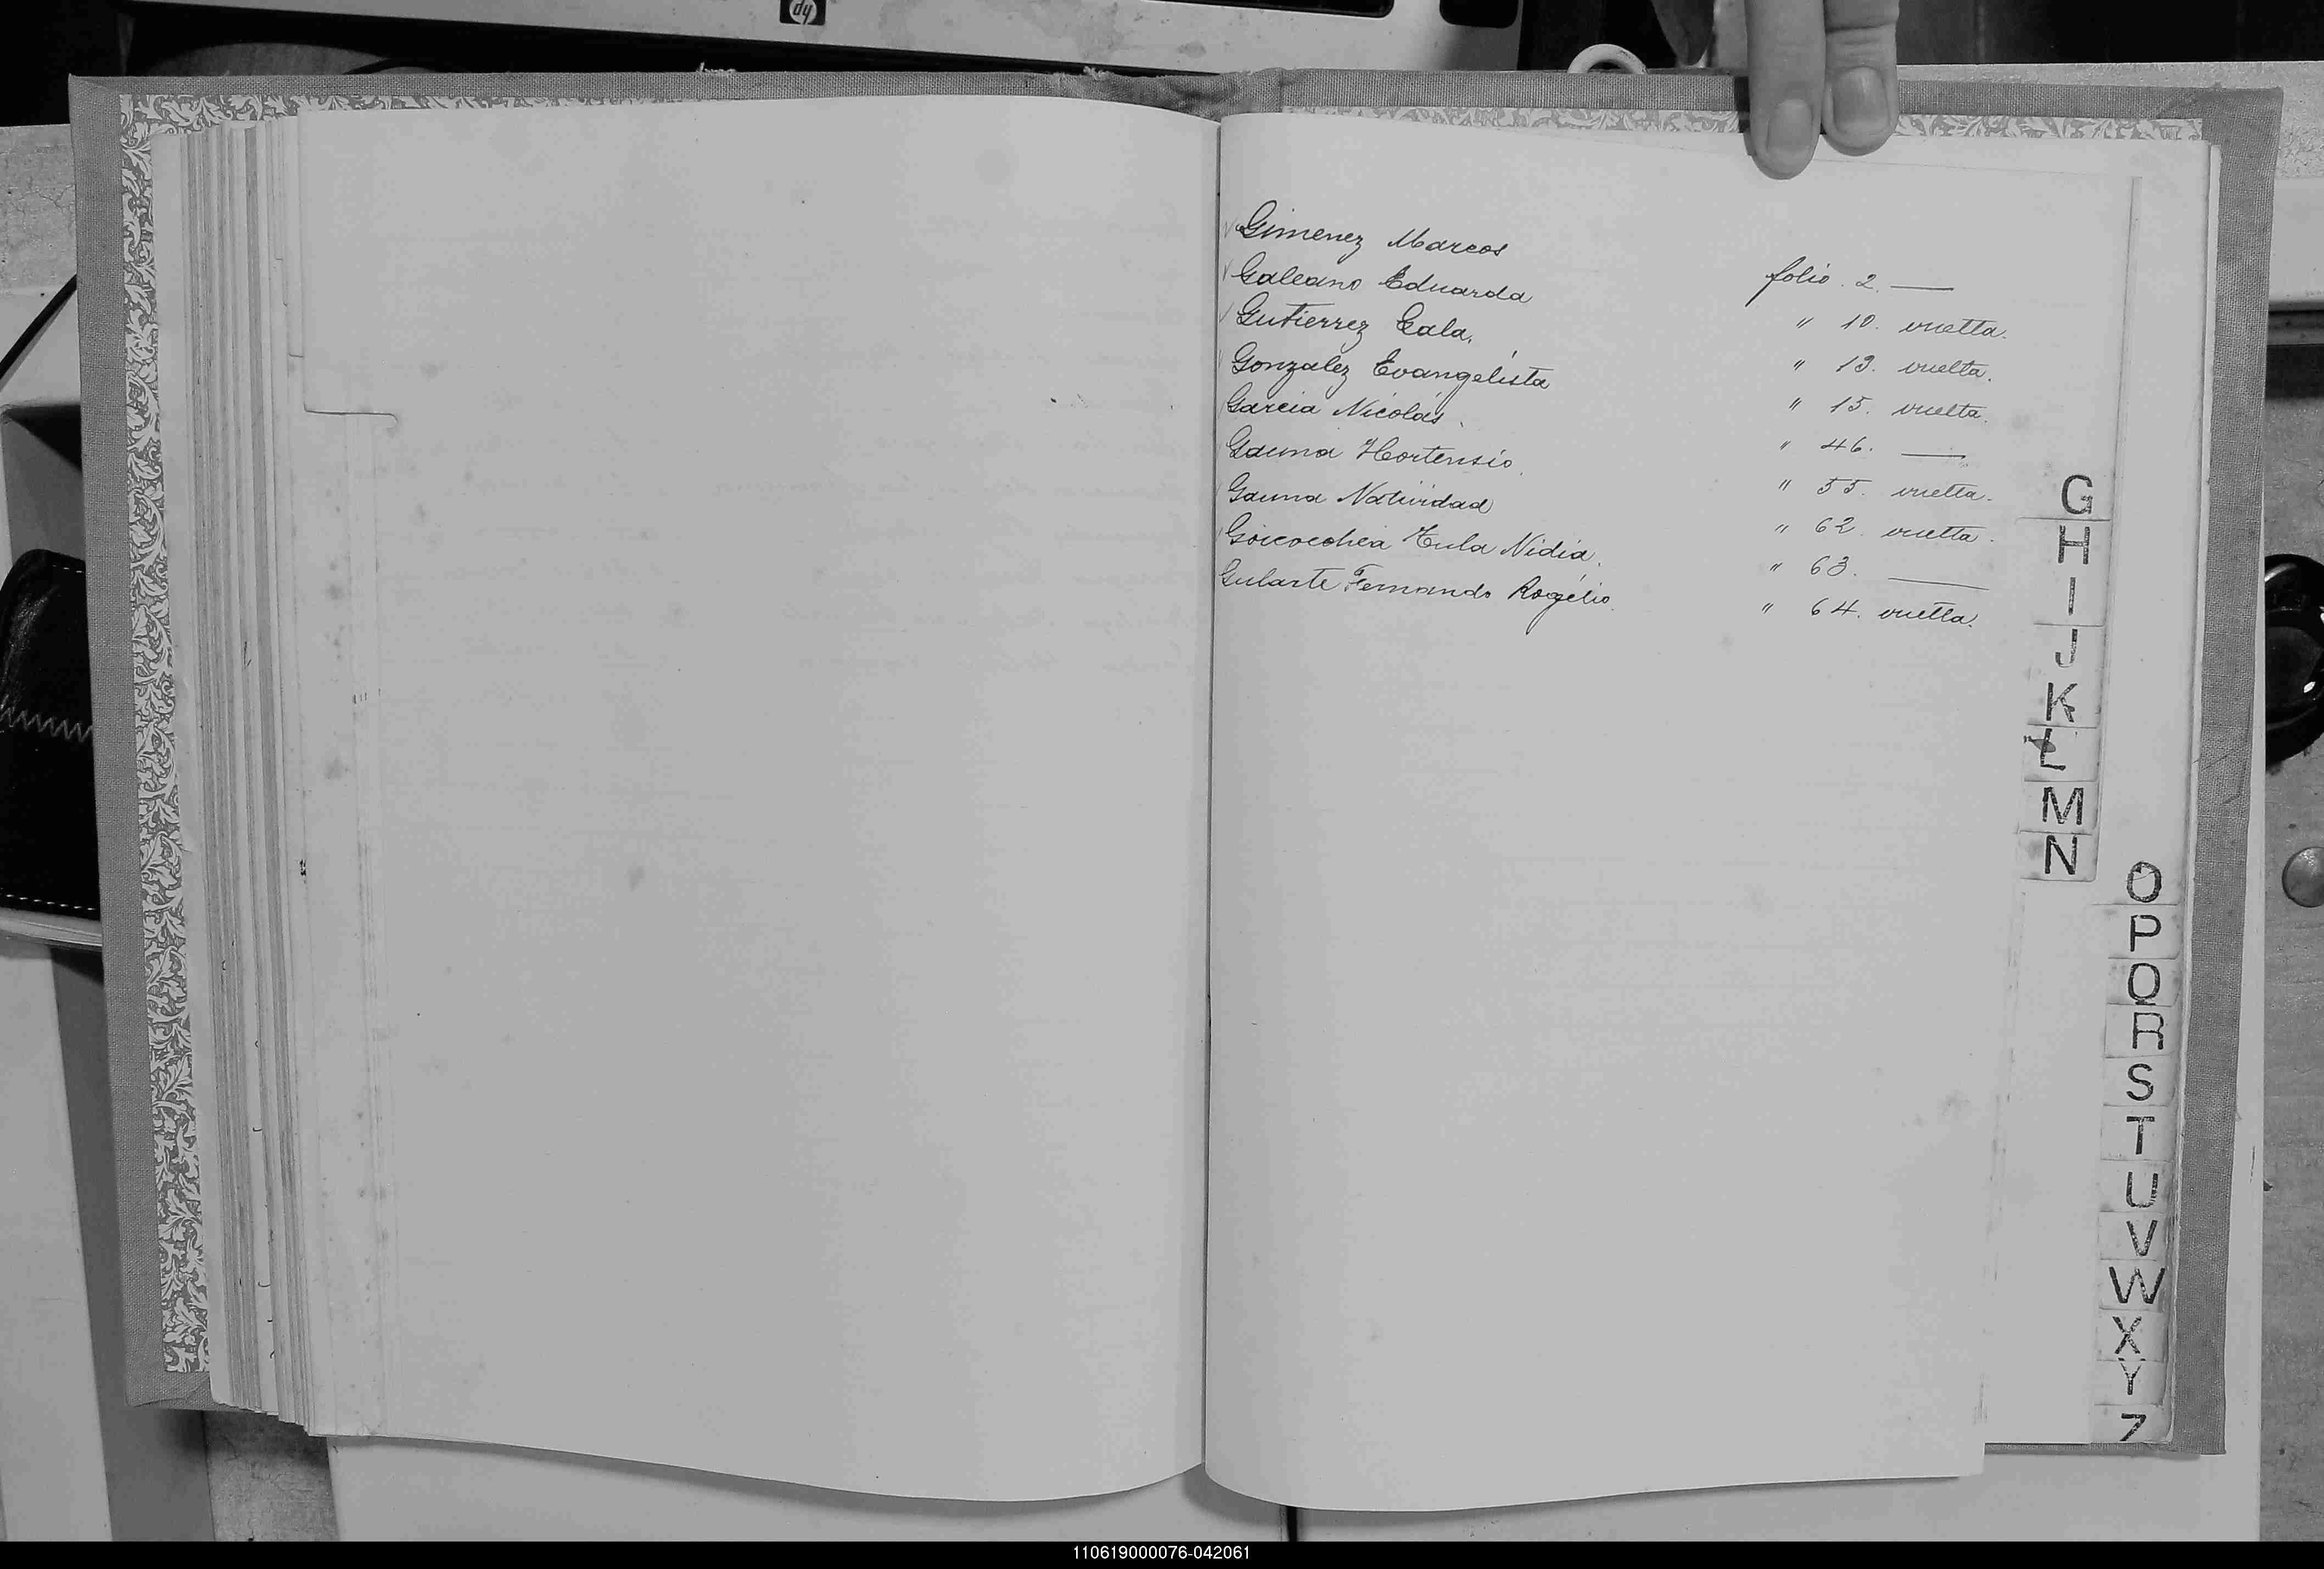 Gimenez Marcos folio. 2. —
Galeano Eduarda " 10. vuelta.
Gutierrez Lala. " 13. vuelta.
Gonzalez Evangelista " 15. vuelta.
Garcia Nicolás. " 46. —
Gauna Hortensio. " 55. vuelta.
Gauna Natividad " 62. vuelta.
Goicocchea Tula Nidia. " 63. —
Gularte Fernando Rogelio. " 64. vuelta.
G
H
I
J
K
L
M
N
O
P
Q
R
S
T
U
V
W
X
Y
Z
110619000076-042061